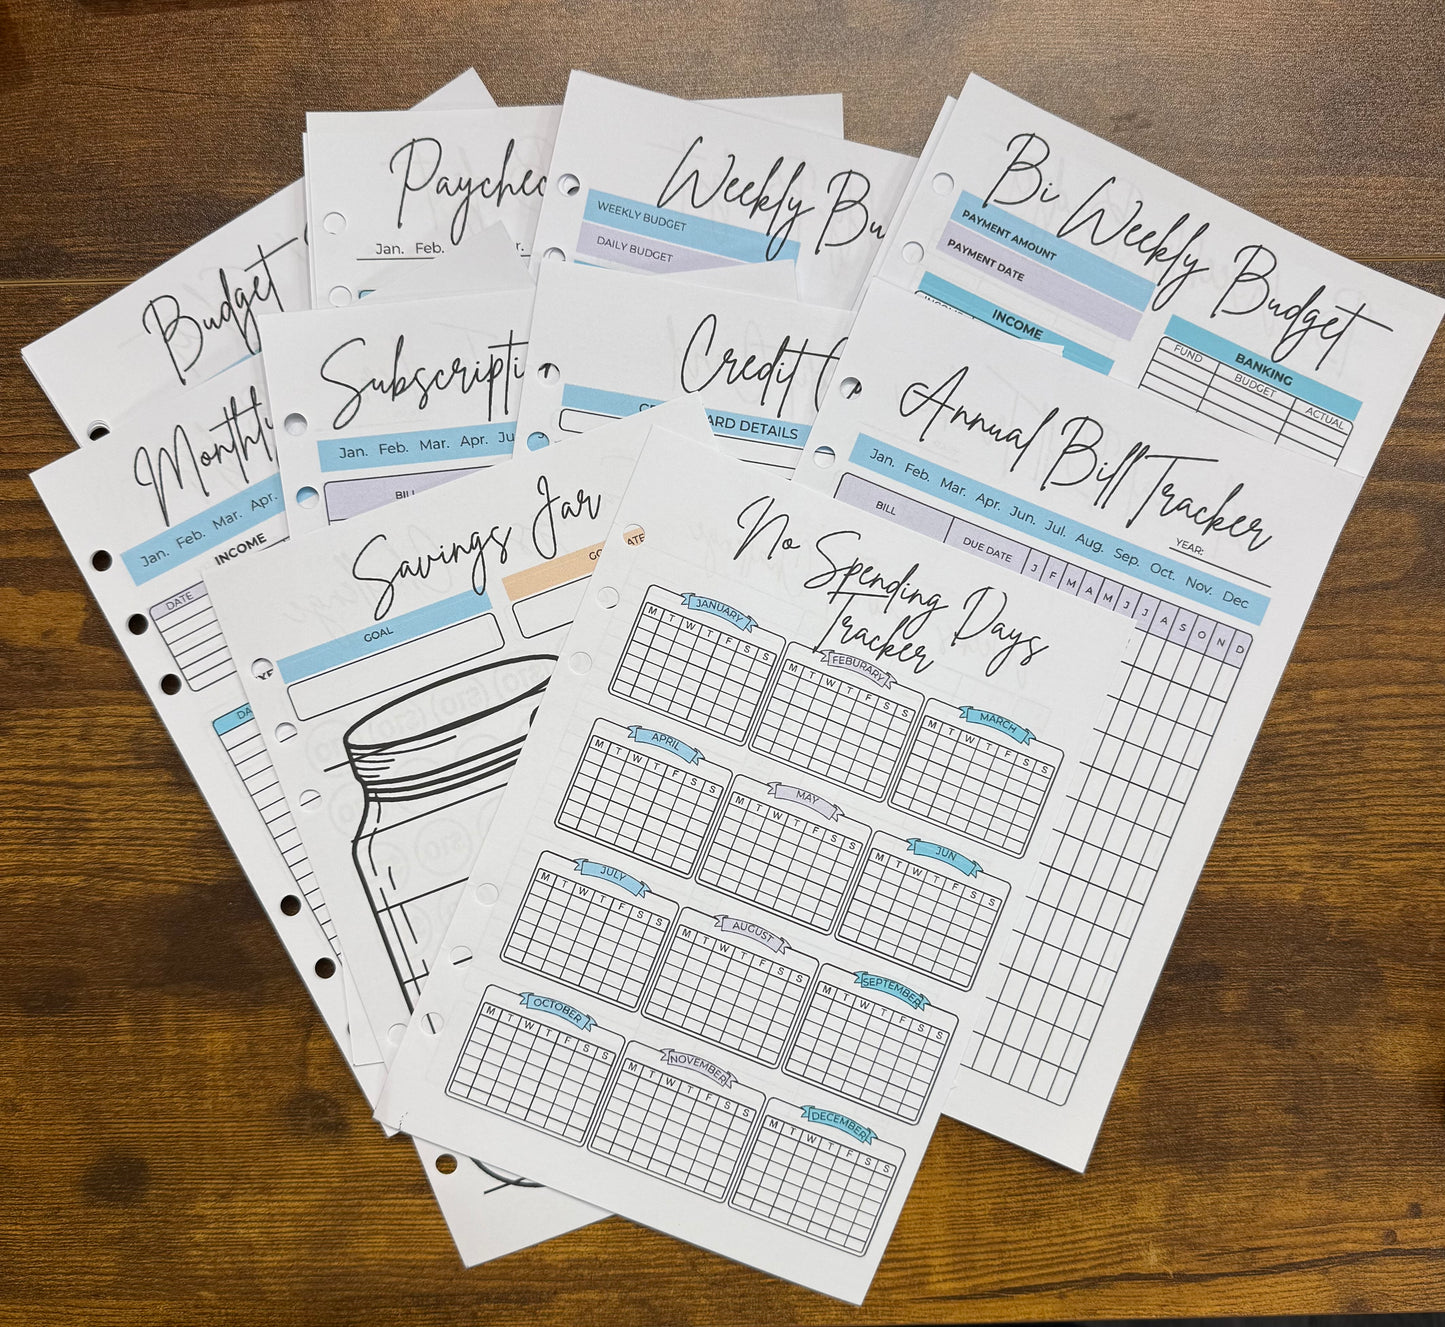 Paychec
Jan. Feb.
Weekly Bu
WEEKLY BUDGET
DAILY BUDGET
Bi Weekly Budget
PAYMENT AMOUNT
PAYMENT DATE
INCOME
BANKING
FUND BUDGET ACTUAL
Budget
Subscripti
Jan. Feb. Mar. Apr. Ju
BIL
Credit C
ARD DETAILS
Annual Bill Tracker
YEAR:
Jan. Feb. Mar. Apr. Jun. Jul. Aug. Sep. Oct. Nov. Dec
BILL DUE DATE J F M A M J J A S O N D
Monthly
Jan. Feb. Mar. Apr.
INCOME
DATE
DA
Savings Jar
GOAL
GO
ATE
$10 $10
$10
No Spending Days
Tracker
JANUARY
M T W T F S S
FEBURARY
M T W T F S S
MARCH
M T W T F S S
APRIL
M T W T F S S
MAY
M T W T F S S
JUN
M T W T F S S
JULY
M T W T F S S
AUGUST
M T W T F S S
SEPTEMBER
M T W T F S S
OCTOBER
M T W T F S S
NOVEMBER
M T W T F S S
DECEMBER
M T W T F S S